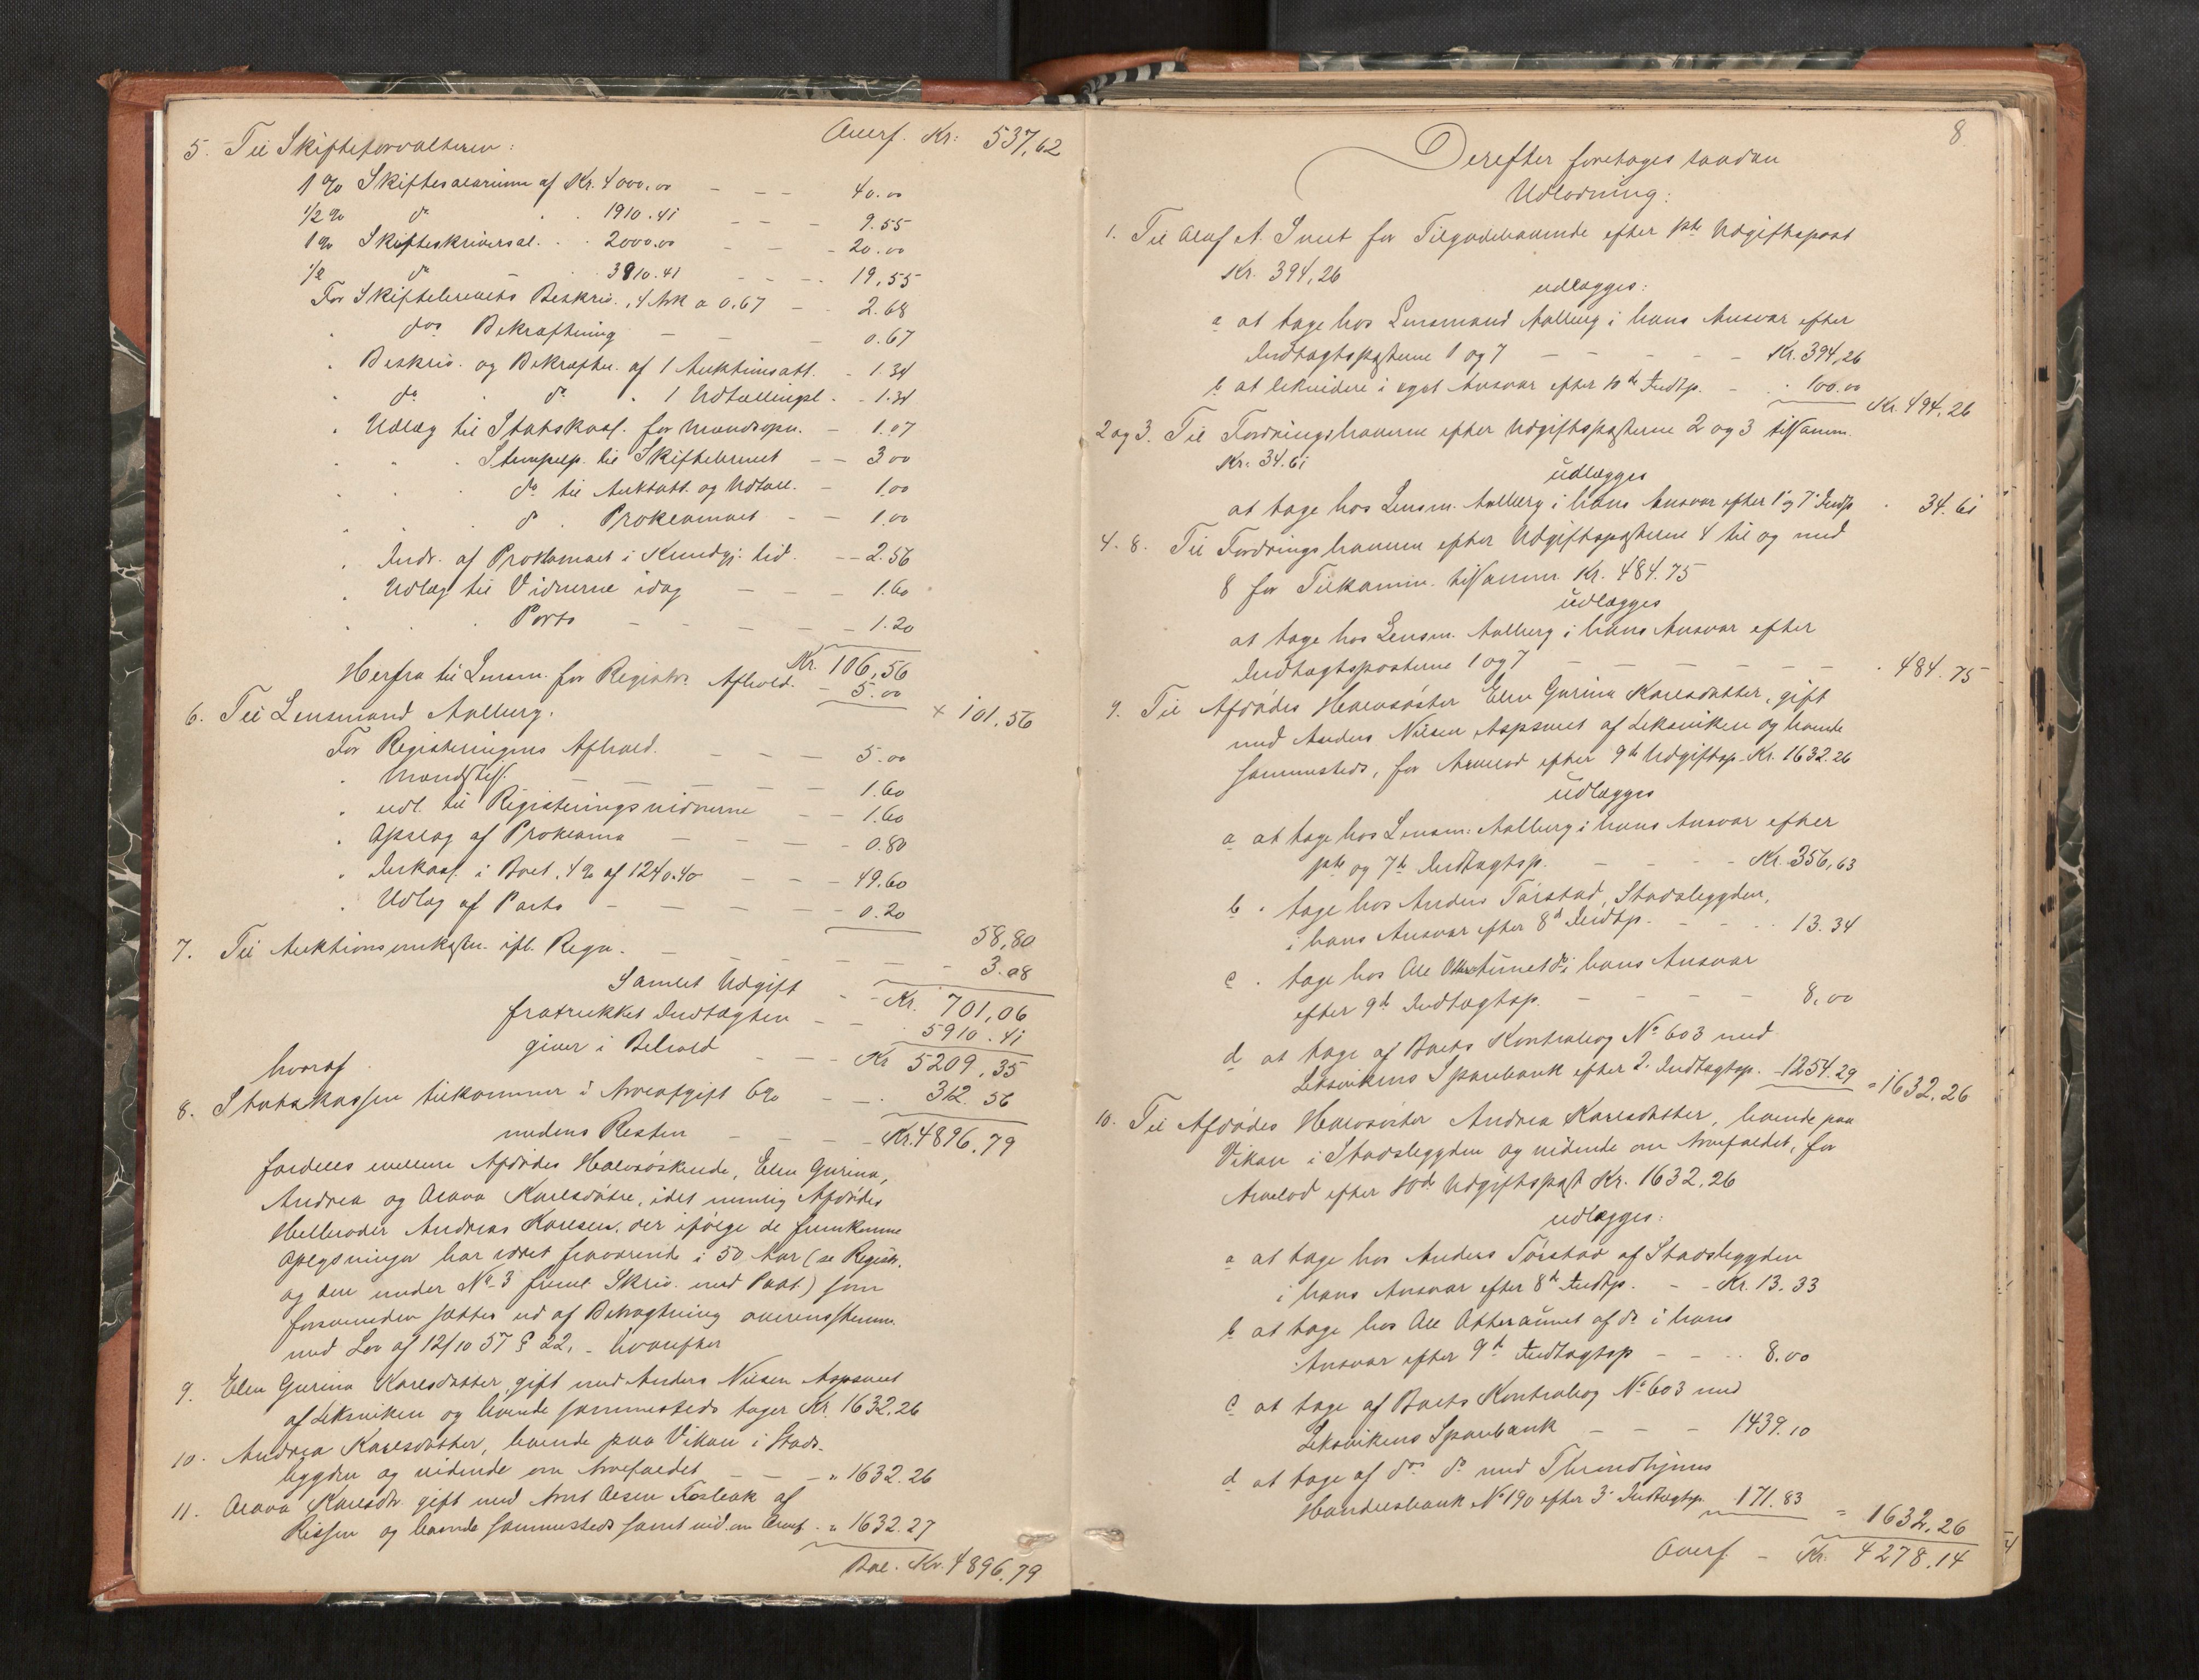 Overf. Kr: 537,62
5. Til Skifteforvalteren:
1 % Skiftesalarium af Kr. 4000,00 - - - 40.00
1/2 % do . . 1910.41 - - - 9.55
1 % Skifteskriversal. . . 2000.00 - - - 20.00
1/2 do - . 3910.41 - - - 19,55
For Skiftebrevets Beskriv. 4 Ark a 0.67 - - 2.68
. ds. Bekræftning - - 0.67
. Beskriv. og Bekræftn. af 1 Auktionsatt. - 1.34
. do . do . 1 Udtællingsl. - 1.34
. Udlæg til Statskass. for Mandsopn. - 1.07
. . . Stempelp. til Skiftebrevet - - 3 00
. . . do til Auktatt. og Udtæll. - 1.00
. . . do . Proklamaet - - 1.00
. Indr. af Proklamaet i Kundgj. tid. - - 2.56
. Udlæg til Vidnerne idag - - - 1.60
. . . Porto - - - - - 1.20
Kr. 106,56
Herfra til Lensm. for Registr. Afhold. - 5.00
x 101,56
6. Til Lensmand Aalberg.
For Registeringens Afhold. - - - 5.00
. Mandstell. - - - - 1.60
. udl. til Registeringsvidnerne - - 1.60
. Opslag af Proklama - - - 0.80
. Inkass. i Boet, 4 % af 1240.40 - - - 49.60
. Udlæg af Porto - - - - 0.20
58,80
7. Til Auktionsinkass. ifl. Regn. - - - - - 3.08
Samlet Udgift - - Kr. 701,06
fratrukket Indtægten - - 5910.41
giver i Behold - - - Kr 5209,35
hvoraf
8. Statskassen tilkommer i Arveafgift 6 % - - . 312.56
medens Resten - - - - Kr. 4896,79
fordeles mellem Afdødes Halvsøskende, Elen Gurina,
Andrea og Olava Karlsdøtre, idet nemlig Afdødes
Helbroder Andreas Karlsen, der ifølge de fremkomne
Oplysninger har været fraværende i 50 Aar (se Registr.
og den under No 3 freml. Skriv. med Paat.) som
forsvunden sættes ud af Betragtning overensstemm.
med Lov af 12/10 57 § 22, - hvorefter
9. Elen Gurina Karlsdatter, gift med Anders Nilsen Aspsaet
af Leksviken og boende sammesteds tager Kr. 1632,26
10. Andrea Karlsdatter, boende paa Vikan i Stads-
bygden og vidende om Arvefaldet - - - " 1632.26
11. Olava Karlsdtr. gift med Arnt Olsen Fosbak af
Rissen og boende sammesteds samt vid. om Arvef. . " 1632.27
Bal. Kr. 4896,79
8
Derefter foretages saadan
Udlodning:
1. Til Oluf A. Sneet for Tilgodehavende efter 1ste Udgiftspost
Kr. 394,26
udlægges:
a at tage hos Lensmand Aalberg i hans Ansvar efter
Indtægtsposterne 1 og 7 - - - - - Kr. 394,26
b at likvidere i eget Ansvar efter 10de Indtp. - . 100.00
Kr. 494,26
2 og 3. Til Fordringshaverne efter Udgiftsposterne 2 og 3 tilsamm.
Kr. 34.61
udlægges
at tage hos Lensm. Aalberg i hans Ansvar efter 1 og 7 Indtp. . 34.61
4. 8. Til Fordringshaverne efter Udgiftsposterne 4 til og med
8 for Tilkomm. tilsamm. Kr. 484.75
udlægges
at tage hos Lensm. Aalberg i hans Ansvar efter
Indtægtsposterne 1 og 7 - - - - - - . 484.75
9. Til Afdødes Halvsøster Elen Gurina Karlsdatter, gift
med Anders Nilsen Aspsaet af Leksviken og boende
sammesteds, for Arvelod efter 9de Udgiftsp. Kr. 1632.26
udlægges
a at tage hos Lensm: Aalberg i hans Ansvar efter
1ste og 7de Indtægtsp. - - - - Kr. 356,63
b . tage hos Anders Tørstad, Stadsbygden,
i hans Ansvar efter 8de Indtp. - - . . 13.34
c . tage hos Ole do i hans Ansvar
efter 9de Indtægtsp. - - - - 8,00
d at tage af Boets Kontrabog No 603 med
Leksvikens Sparebank efter 2. Indtægtsp. - 1254.29 = 1632,26
10. Til Afdødes Halvsøster Andrea Karlsdatter, boende paa
Vikan i Stadsbygden og vidende om Arvefaldet, for
Arvelod efter 10de Udgiftspost Kr. 1632,26
udlægges:
a at tage hos Anders Tørstad af Stadsbygden
i hans Ansvar efter 8de Indtp. - - Kr. 13.33
b at tage hos Ole Otteraunet af do i hans
Ansvar efter 9de Indtægtsp - - . . 8.00
c at tage af Boets Kontrabog No 603 med
Leksvikens Sparebank - - - 1439.10
d at tage af ds. do med Throndhjems
Handelsbank No 190 efter 3. Indtægtsp. 171.83
= 1632,26
Overf. - Kr. 4278.14